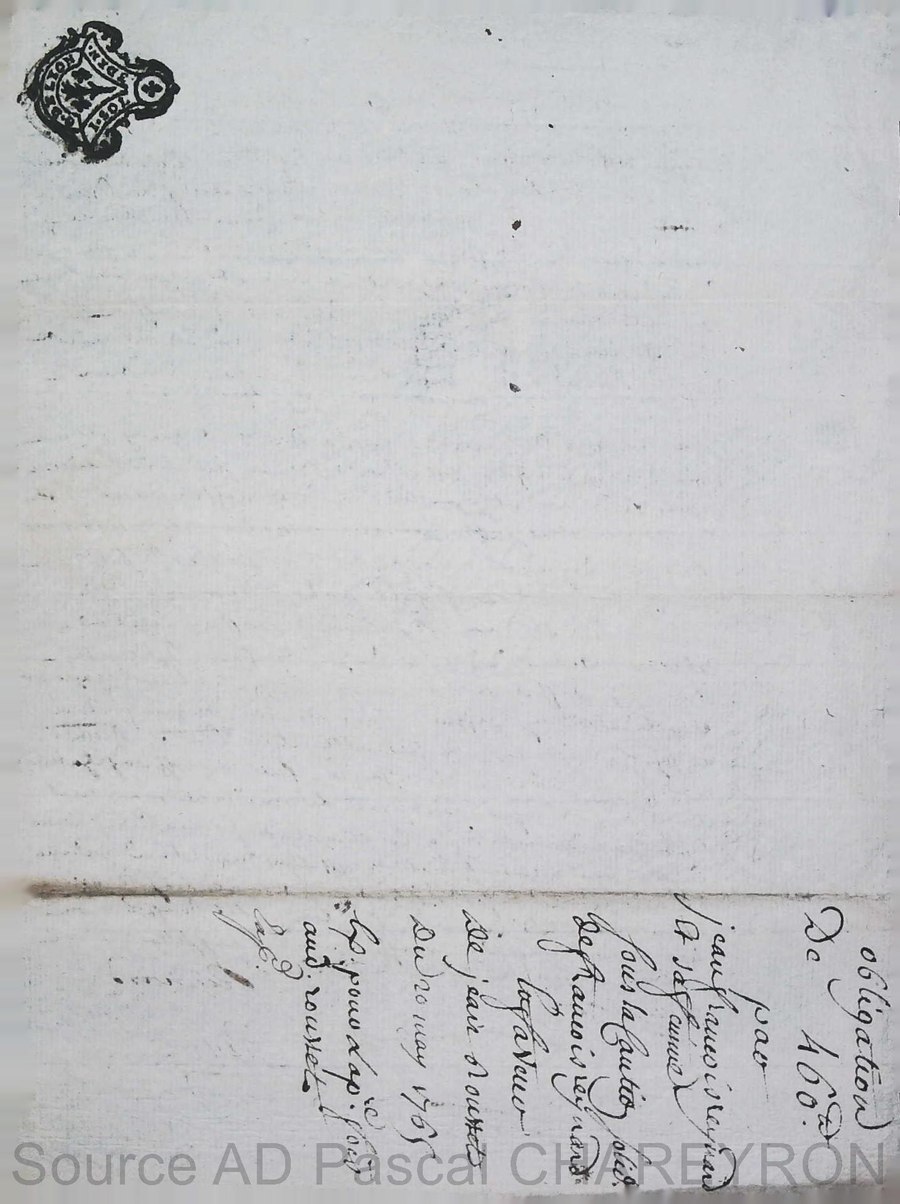 obligation
De 460.
par
jean francois reynaud
et sa femme
sous la caution solid.
De francois reynaud
En faveur
De jean Rousset
Du 10 may 1765
Exp. pour la p.re fois
aud. rousset
Source AD Pascal CHAREYRON